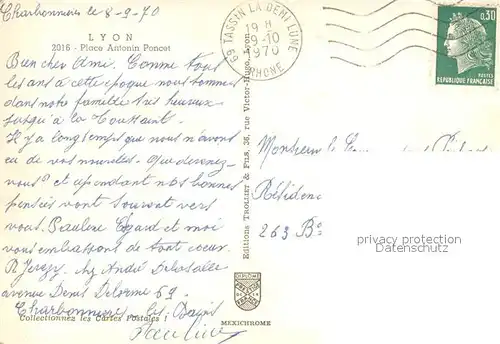 Charbonnieres le 8-9-70
LYON
2016 - Place Antonin Poncet
Bien cher Ami. Comme tous
les ans à cette epoque nous sommes
dans notre famille tres heureux
jusqu'à la Toussaint.
Il y a longtemps que nous n'avons
eu de vos nouvelles. Que devenez-
vous? et cependant nos bonnes
pensées vont souvent vers
vous. Pauline et moi
vous embrassons de tout coeur.
chez André Delasalle
avenue Denis Delorme 69
Charbonnieres les-Bains
Collectionnez les Cartes Postales !
Pauline
Editions TROLLIET & FILS, 36, rue Victor-Hugo, Lyon
DIPLOME
MEXICHROME
69 TASSIN LA DEMI LUNE
19 H
9-10
1970
RHONE
0,30
POSTES
REPUBLIQUE FRANÇAISE
Monsieur le
Résidenc
263 Bo
privacy protection
Datenschutz